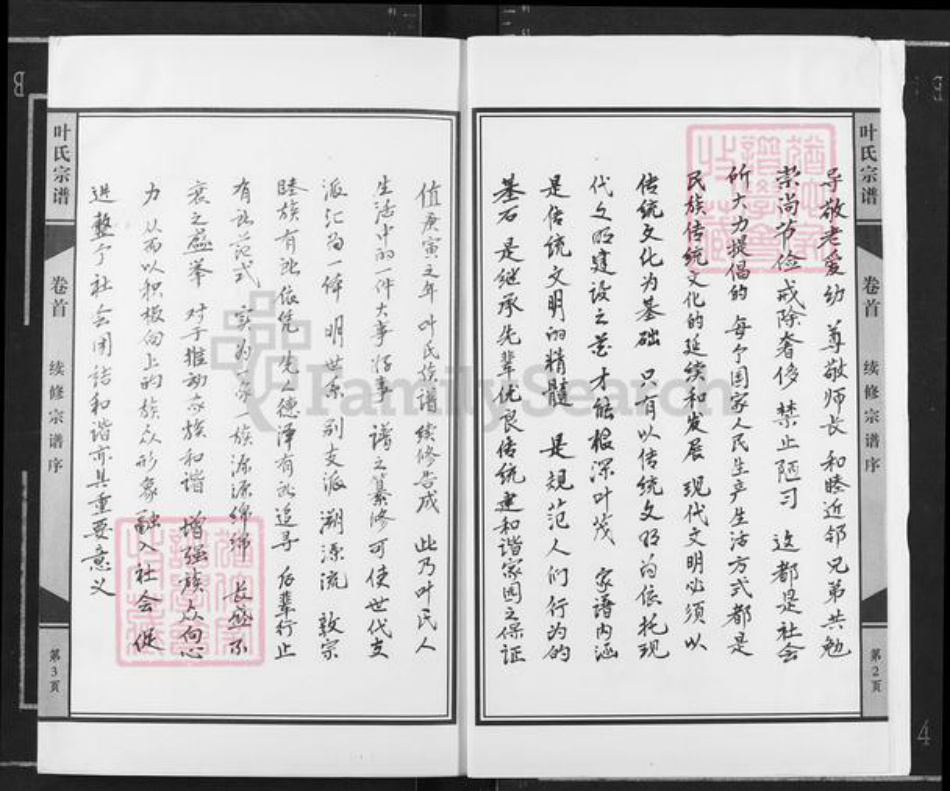 叶氏宗谱
卷首
续修宗谱序
第2页
导敬老爱幼 尊敬师长 和睦近邻 兄弟共勉
崇尚节俭 戒除奢侈 禁止陋习 这都是社会
所大力提倡的 每个国家人民生产生活方式都是
民族传统文化的延续和发展 现代文明必须以
传统文化为基础 只有以传统文明为依托 现
代文明建设之花 才能根深叶茂 家谱内涵
是传统文明的精髓 是规范人们行为的
基石 是继承先辈优良传统 建和谐家园之保证
值庚寅之年 叶氏族谱续修告成 此乃叶氏人
生活中的一件大事好事 谱之纂修可使世代支
派汇为一体 明世系 别支派 溯源流 敦宗
睦族有所依凭 先人德泽有所追寻 后辈行止
有所范式 实为一家一族源源绵绵 长盛不
衰之盛举 对于推动家族和谐 增强族众向心
力 从而以积极向上的族众形象 融入社会 促
进整个社会团结和谐亦具重要意义
叶氏宗谱
卷首
续修宗谱序
第3页
FamilySearch
B
4